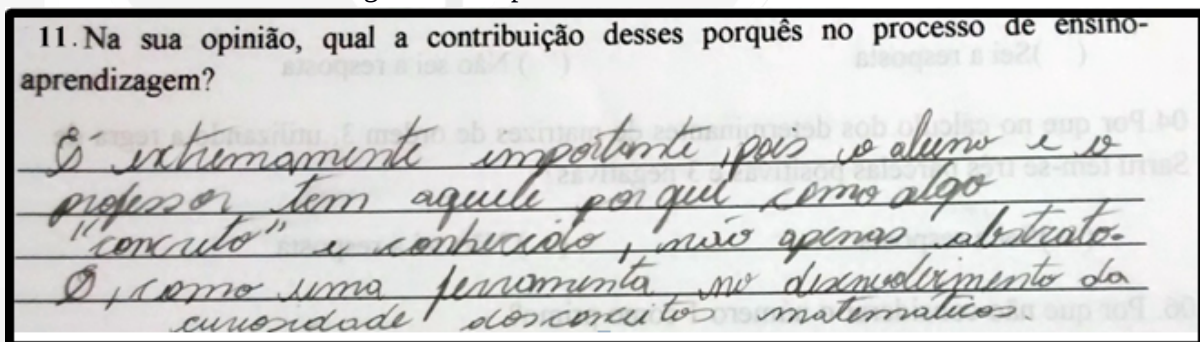 11. Na sua opinião, qual a contribuição desses porquês no processo de ensino-
aprendizagem?
É extremamente importante, pois o aluno e o
professor tem aquele por quê como algo
"concreto" e conhecido, não apenas abstrato.
E, como uma ferramenta no desenvolvimento da
curiosidade dos conceitos matemáticos.